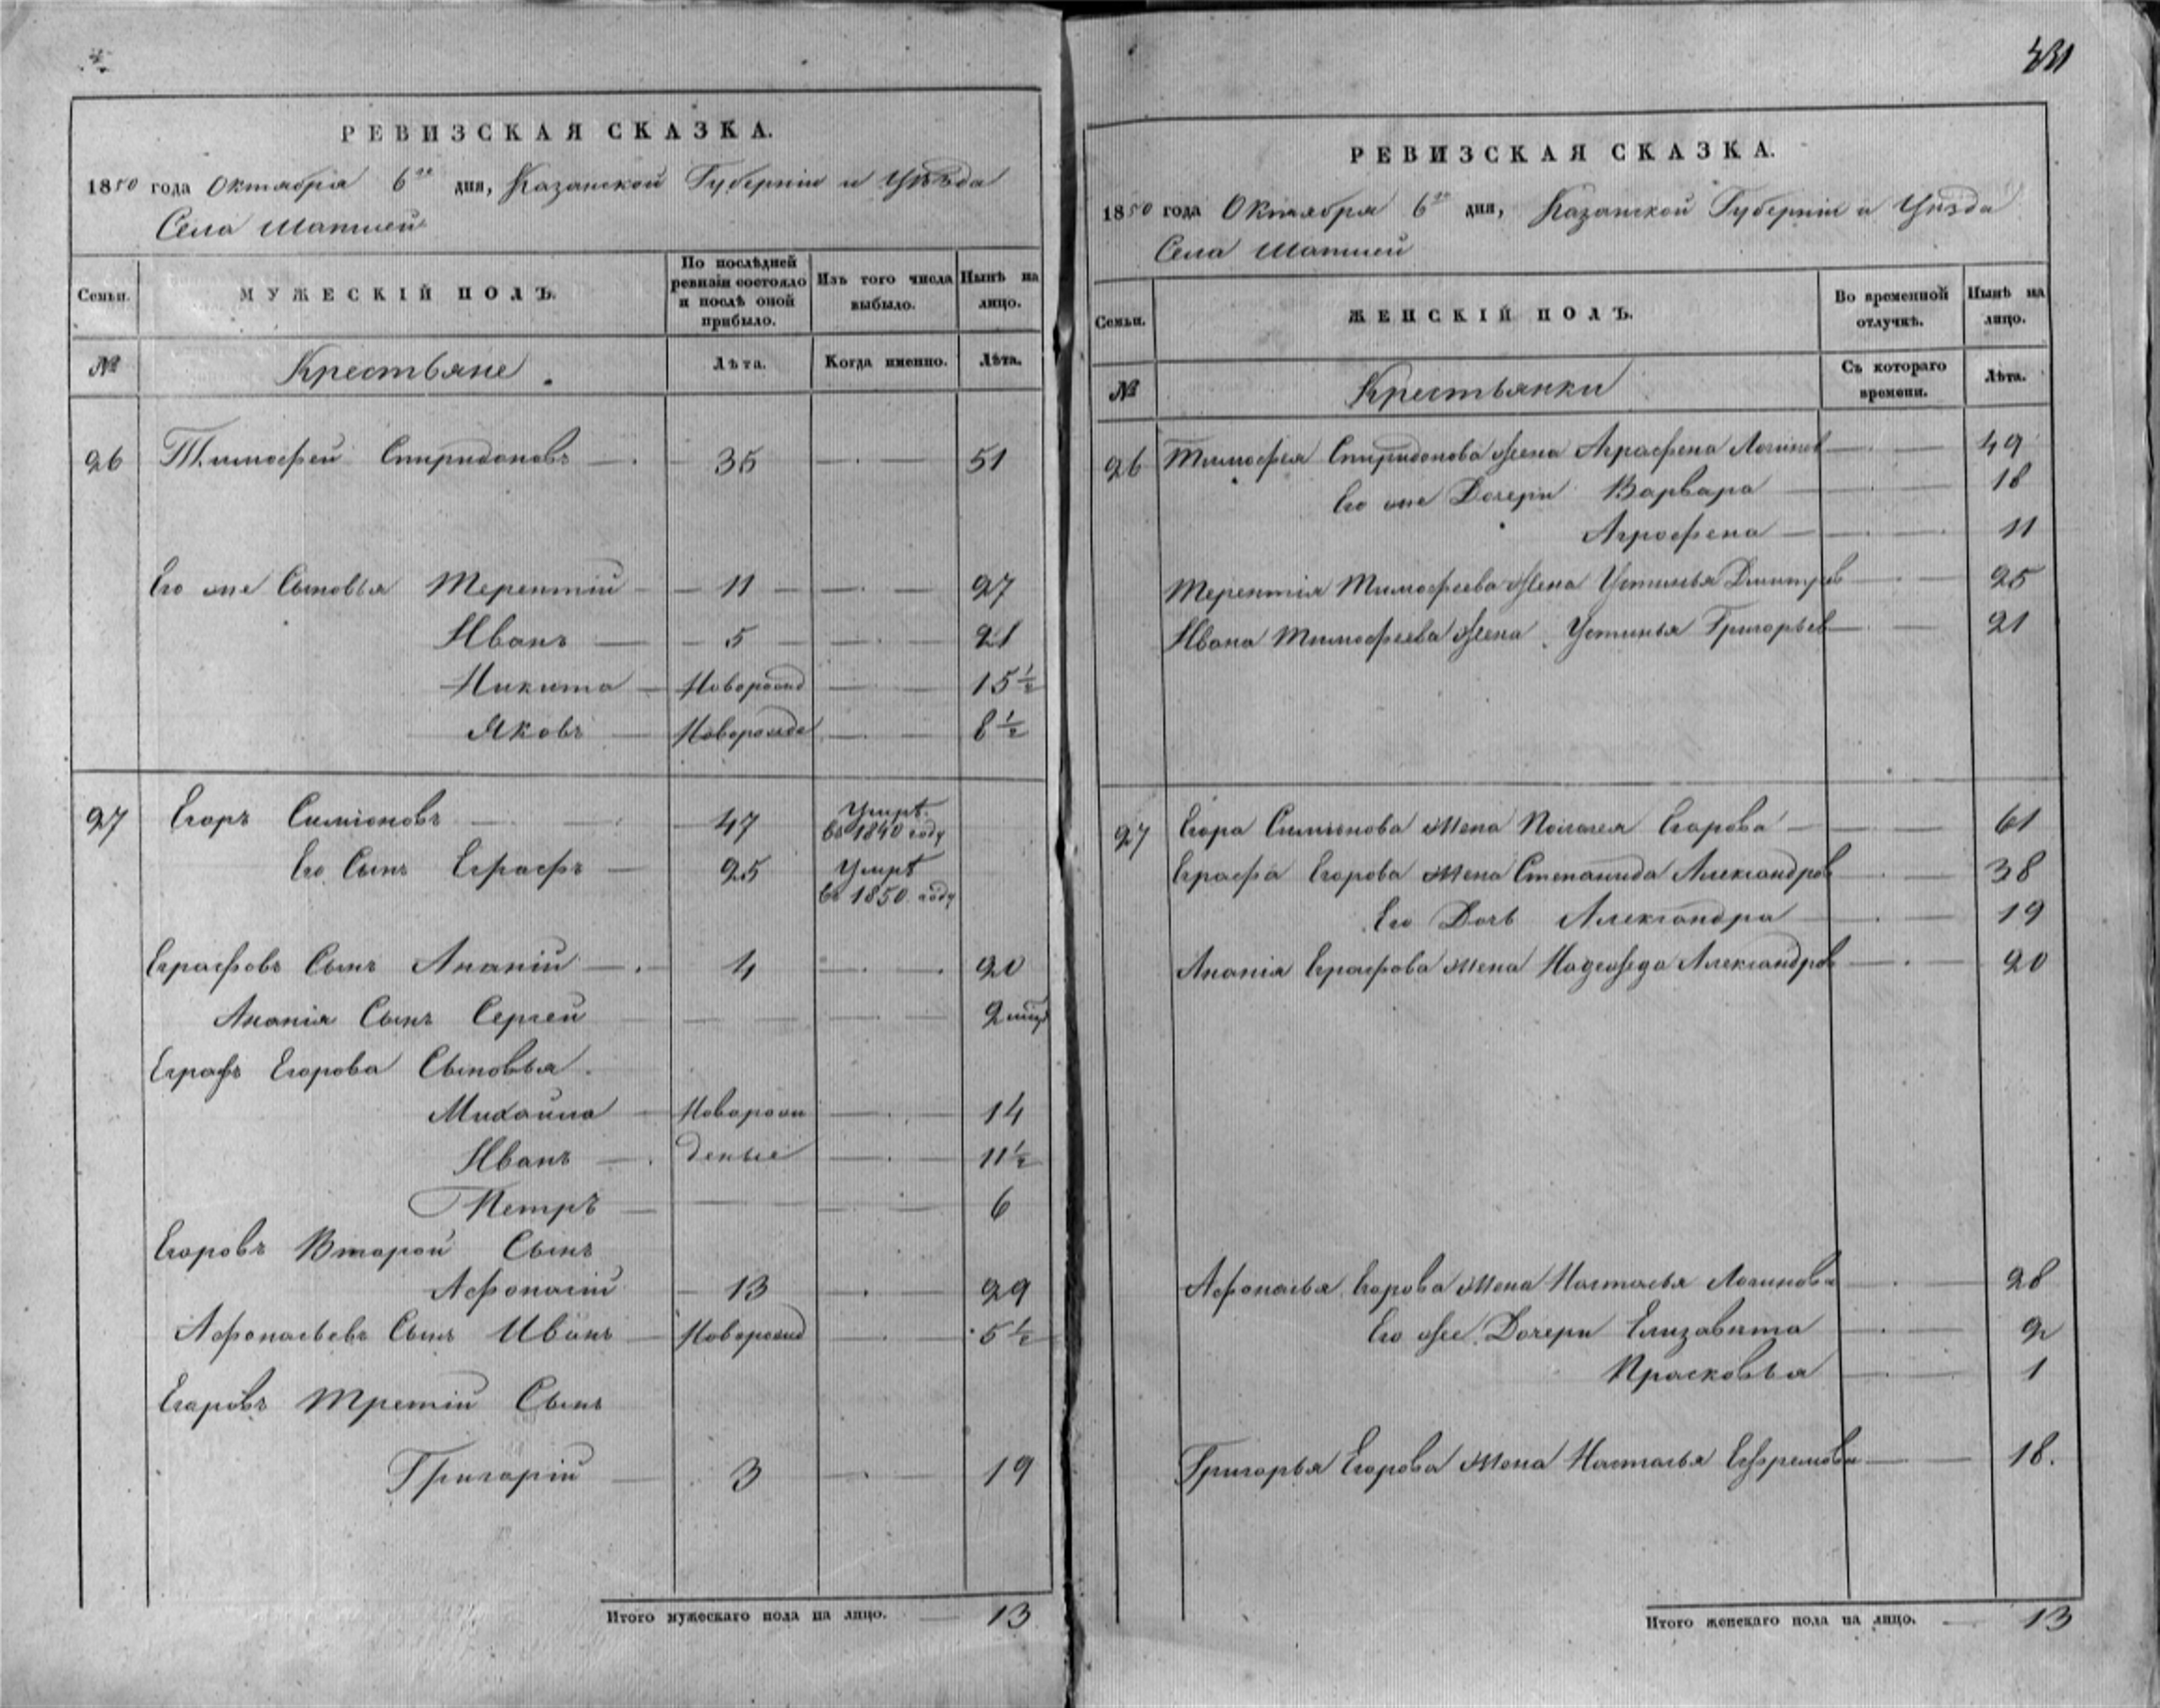 РЕВИЗСКАЯ СКАЗКА.
1850 года Октября 6го дня, Казанской Губерніи и Уѣзда
Села Шапшей
Семьи. МУЖЕСКІЙ ПОЛЪ. По послѣдней ревизіи состояло и послѣ оной прибыло. Изъ того числа выбыло. Нынѣ на лицо.
№ Крестьяне. Лѣта. Когда именно. Лѣта.
26 Тимофей Спиридоновъ — 35 — 51
Его же Сыновья Терентій — 11 — 27
Иванъ — 5 — 21
Никита — Новорожд — 15 1/2
Яковъ — Новорожде — 8 1/2
27 Егоръ Симіоновъ — 47 Умръ въ 1840 году
Его Сынъ Еграфъ — 25 Умръ въ 1850 году
Еграфовъ Сынъ Ананій — 4 — 20
Ананія Сынъ Сергей — — 2
Еграфъ Егорова Сыновья
Михайла — Новорож — 14
Иванъ — деные — 11 1/2
Петръ — — 6
Егоровъ Второй Сынъ
Афонасій — 13 — 29
Афонасьевъ Сынъ Иванъ — Новорожд — 5 1/2
Егоровъ Третій Сынъ
Григорій — 3 — 19
Итого мужескаго пола на лицо. — 13
РЕВИЗСКАЯ СКАЗКА.
1850 года Октября 6го дня, Казанской Губерніи и Уѣзда
Села Шапшей
Семьи. ЖЕНСКІЙ ПОЛЪ. Во временной отлучкѣ. Нынѣ на лицо.
№ Крестьянки Съ котораго времени. Лѣта.
26 Тимофея Спиридонова Жена Аграфена Логинов — 49
Его же Дочери Варвара — 18
Аграфена — 11
Терентія Тимофеева Жена Устинья Дмитрев — 25
Ивана Тимофеева Жена Устинья Григорьев — 21
27 Егора Симіонова Жена Егорова — 61
Еграфа Егорова Жена Степанида Александров — 38
Его Дочь Александра — 19
Ананія Еграфова Жена Надежда Александров — 20
Афонасья Егорова Жена Настасья Логинова — 28
Его же Дочери Елизавѣта — 2
Прасковья — 1
Григорья Егорова Жена Настасья Ефремова — 18.
Итого женскаго пола на лицо. — 13